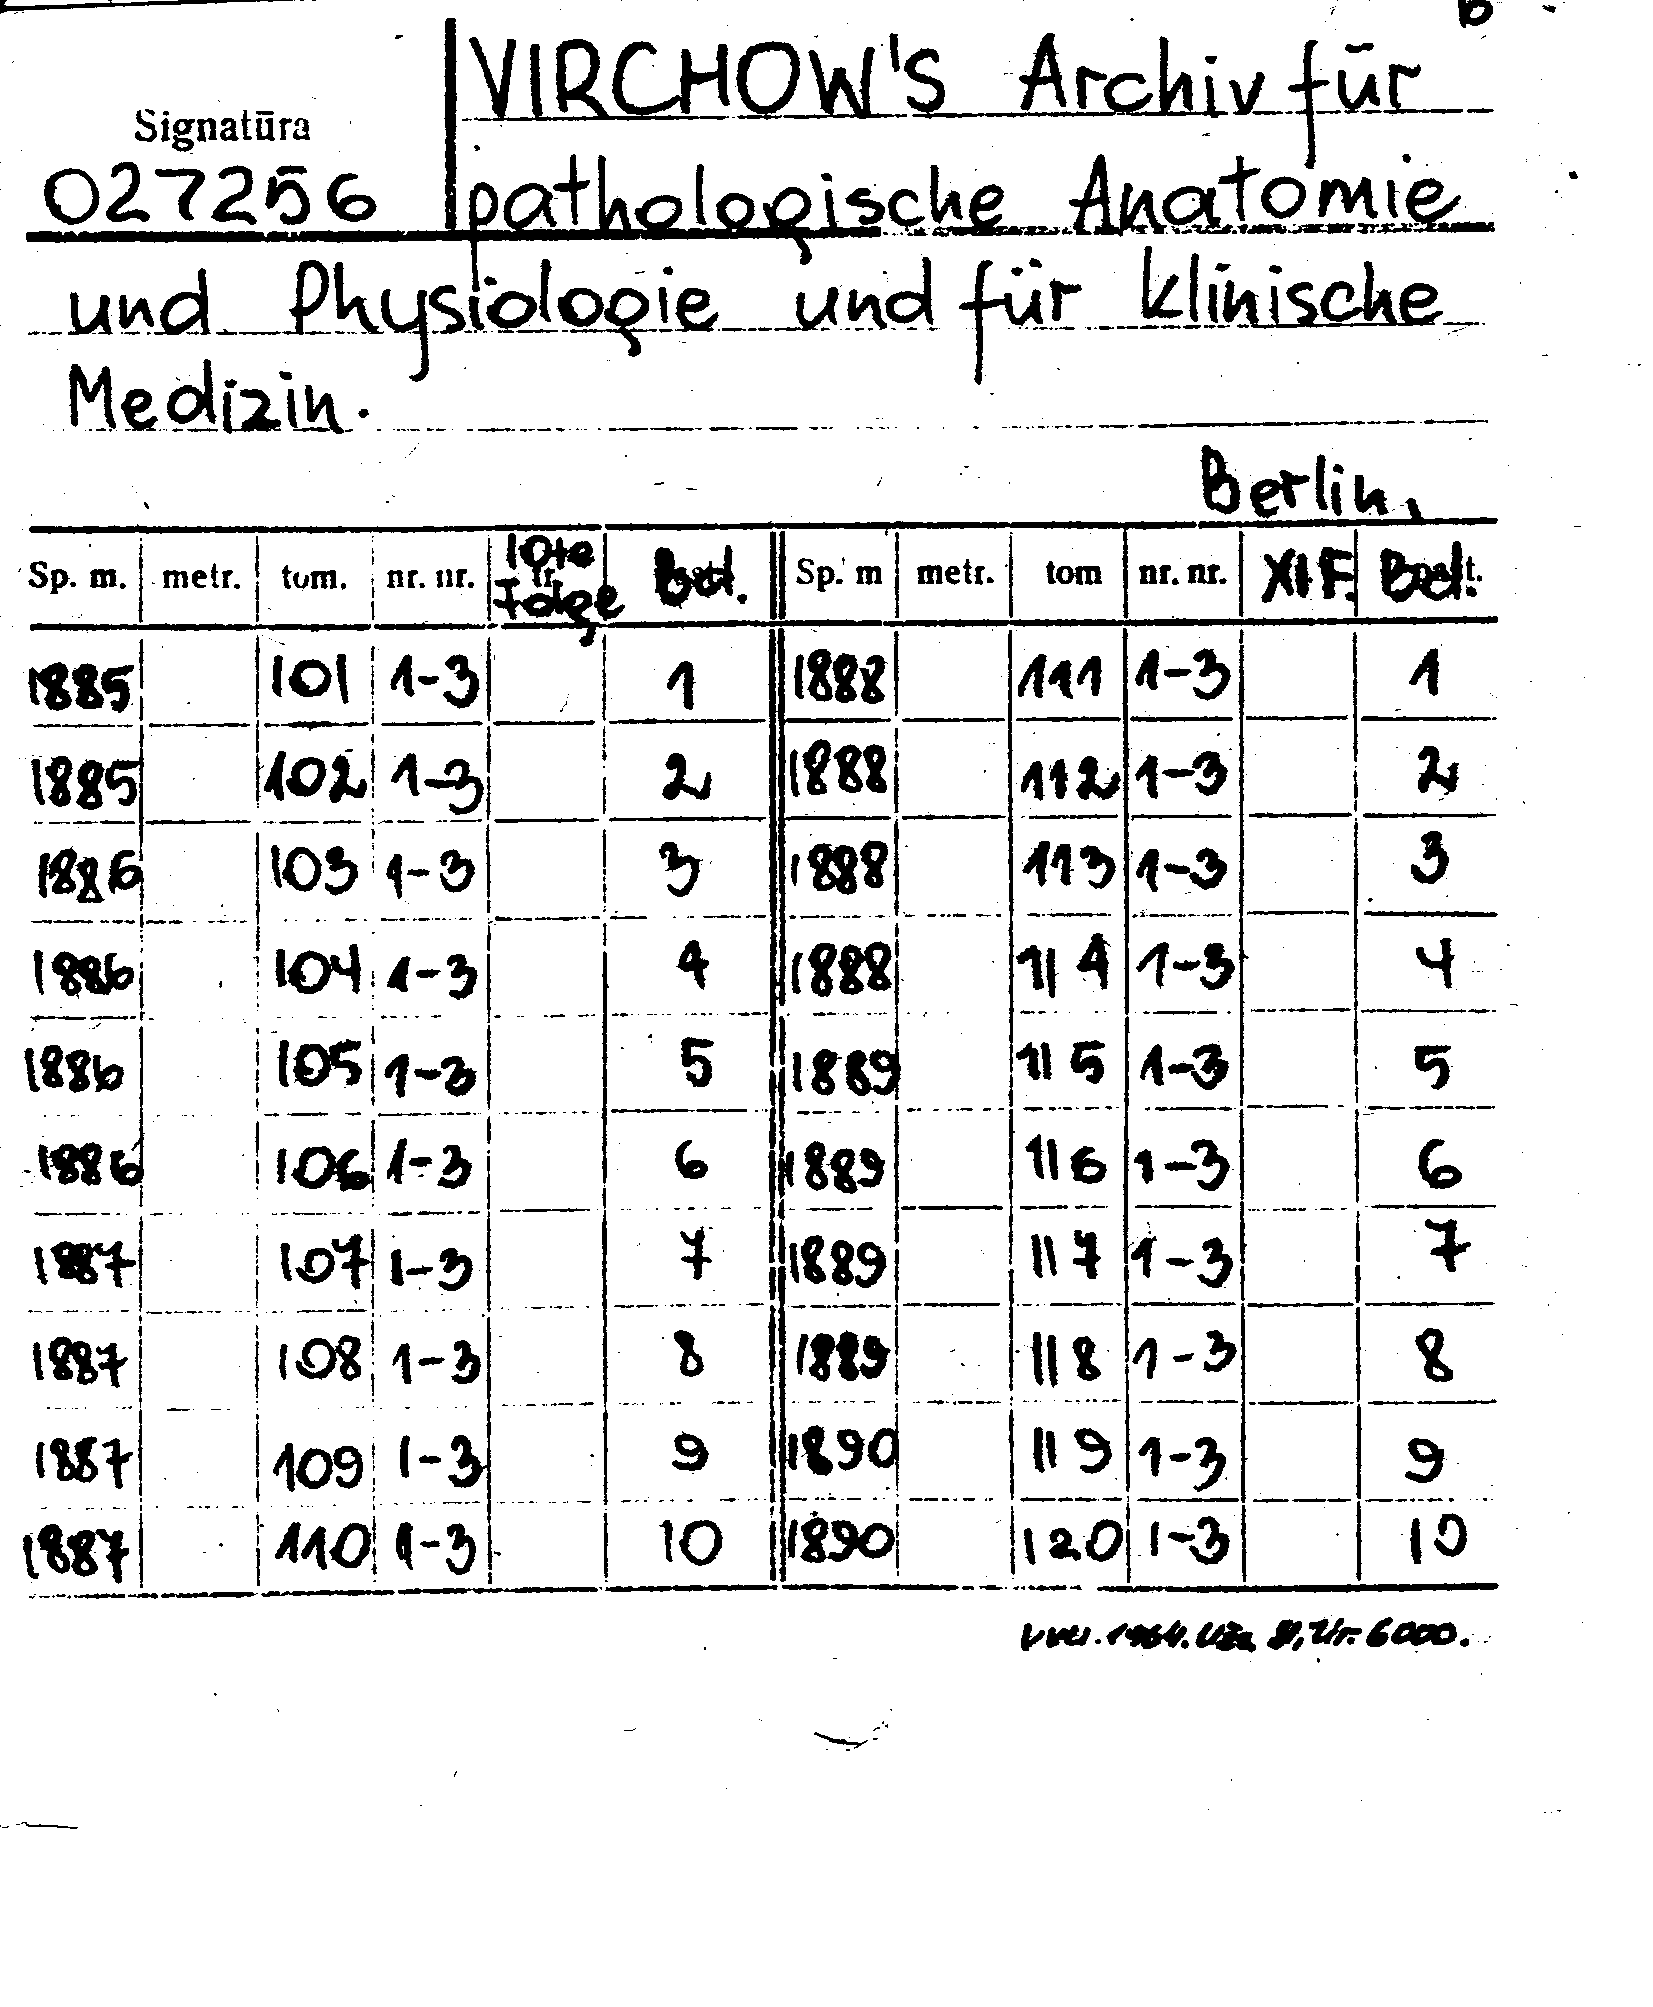 VIRCHOW'S Archiv für
Signatūra
027256 pathologische Anatomie
und Physiologie und für klinische
Medizin.
Berlin.
Sp. m. metr. tom. nr. nr. 10te Folge Bd. Sp. m metr. tom nr. nr. XI F. Bd.
1885 101 1-3 1 1888 111 1-3 1
1885 102 1-3 2 1888 112 1-3 2
1886 103 1-3 3 1888 113 1-3 3
1886 104 1-3 4 1888 114 1-3 4
1886 105 1-3 5 1889 115 1-3 5
1886 106 1-3 6 1889 116 1-3 6
1887 107 1-3 7 1889 117 1-3 7
1887 108 1-3 8 1889 118 1-3 8
1887 109 1-3 9 1890 119 1-3 9
1887 110 1-3 10 1890 120 1-3 10
1964. Užs. 6000.